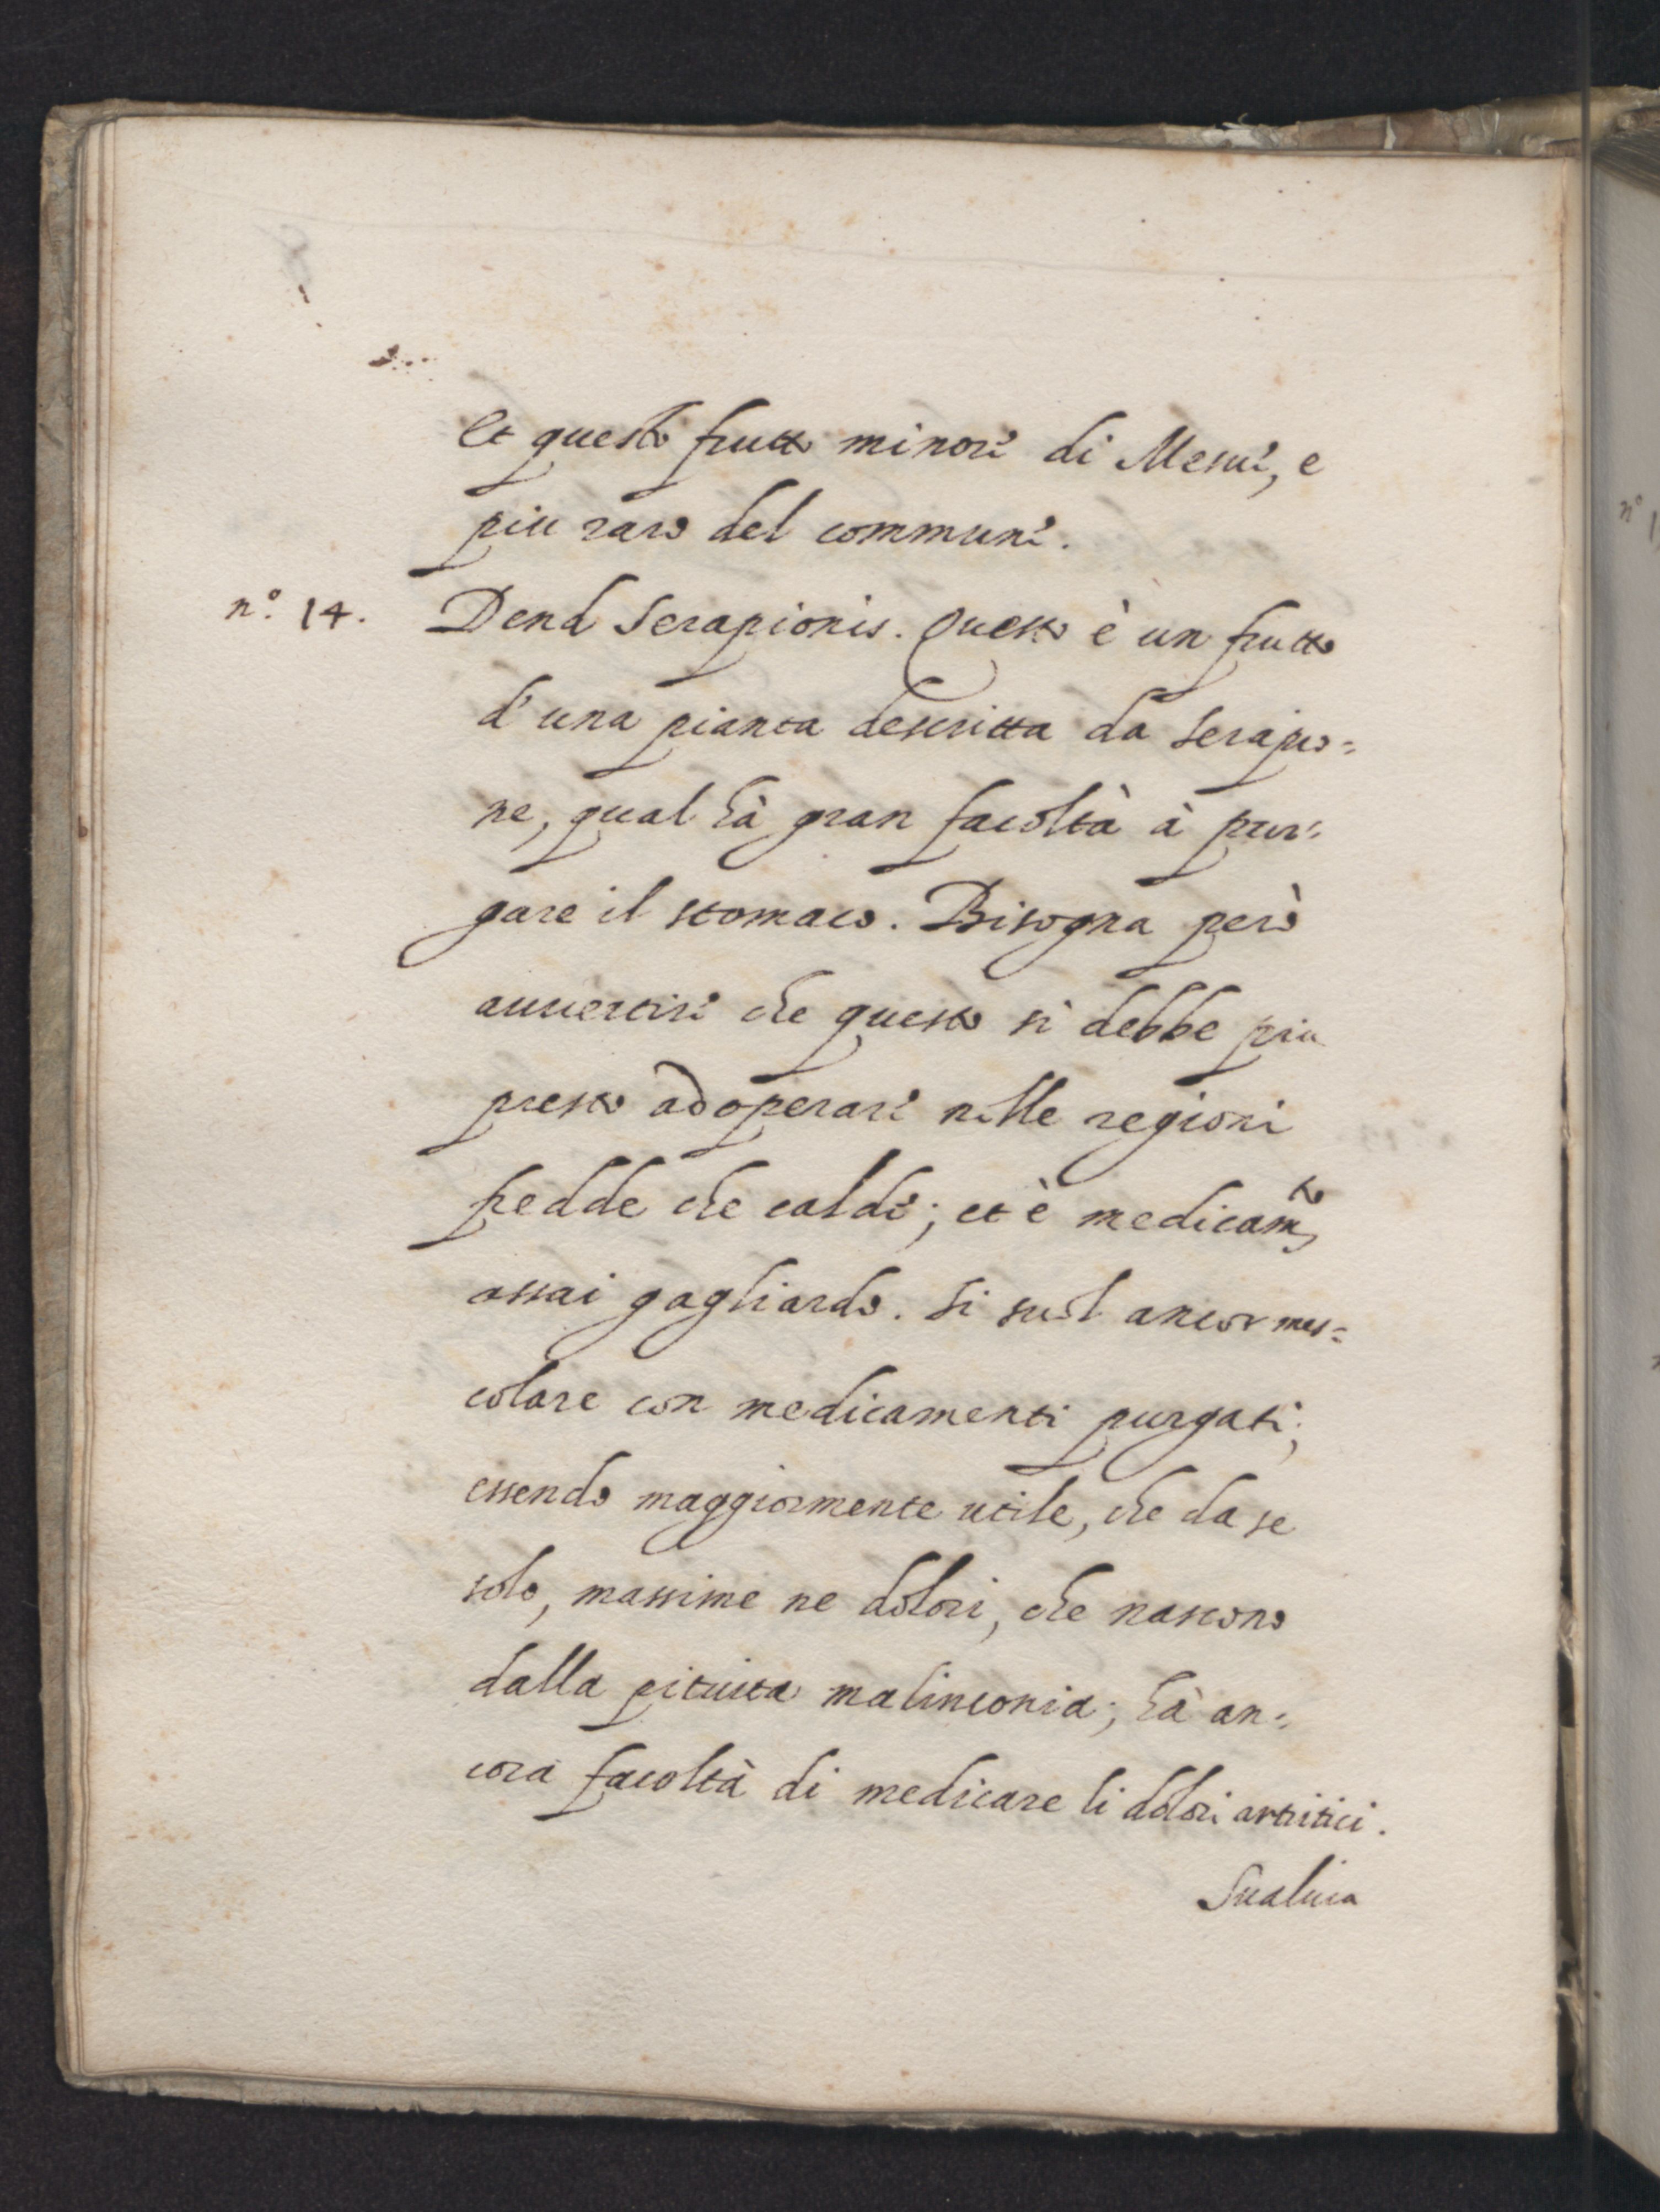 Et questo frutto minore di Mesue, e
piu raro del commune.
n.° 14. Dend Serapionis. Questo è un frutto
d'una pianta descritta da Serapio=
ne, qual hà gran facoltà à pur=
gare il stomaco. Bisogna però
auuertire che questo si debbe piu
presto adoperare nelle regioni
fredde che calde; et è medicam.to
assai gagliardo. Si suol ancor mes=
colare con medicamenti purgati;
essendo maggiormente utile, che da se
solo, massime ne dolori, che nascono
dalla pituita malinconia; hà an=
cora facoltà di medicare li dolori artritici.
n°